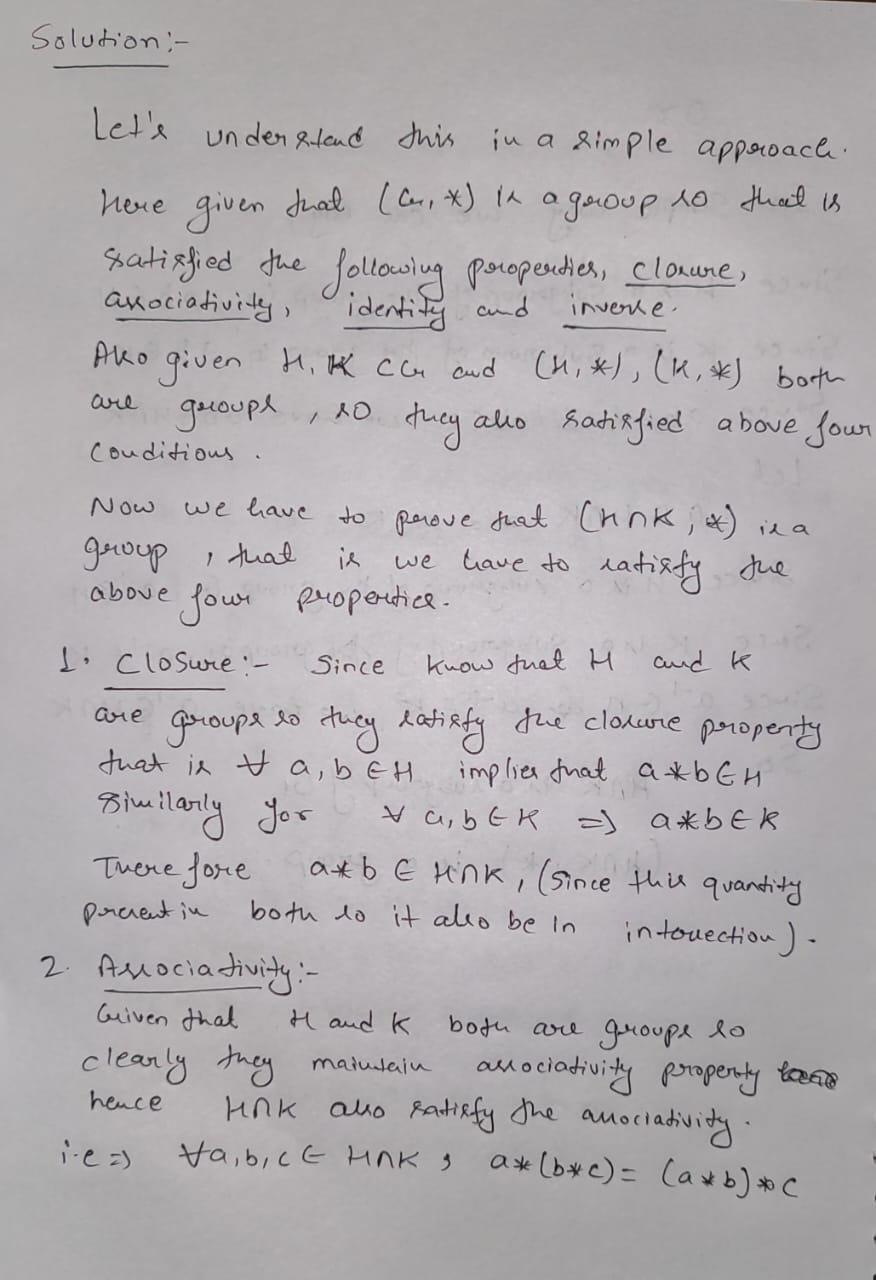 Solution:-
Let's understand this in a simple approach.
Here given that (G, *) is a group so that is
satisfied the following properties, closure,
associativity, identity and inverse.
Also given H, K ⊂ G and (H, *), (K, *) both
are groups, so they also satisfied above four
conditions.
Now we have to prove that (H∩K, *) is a
group, that is we have to satisfy the
above four properties.
1. Closure:- Since know that H and K
are groups so they satisfy the closure property
that is ∀ a, b ∈ H implies that a*b ∈ H
Similarly for ∀ a, b ∈ K => a*b ∈ K
Therefore a*b ∈ H∩K, (since this quantity
present in both so it also be in intersection).
2. Associativity:-
Given that H and K both are groups so
clearly they maintain associativity property
hence H∩K also satisfy the associativity.
i.e => ∀ a, b, c ∈ H∩K, a*(b*c) = (a*b)*c